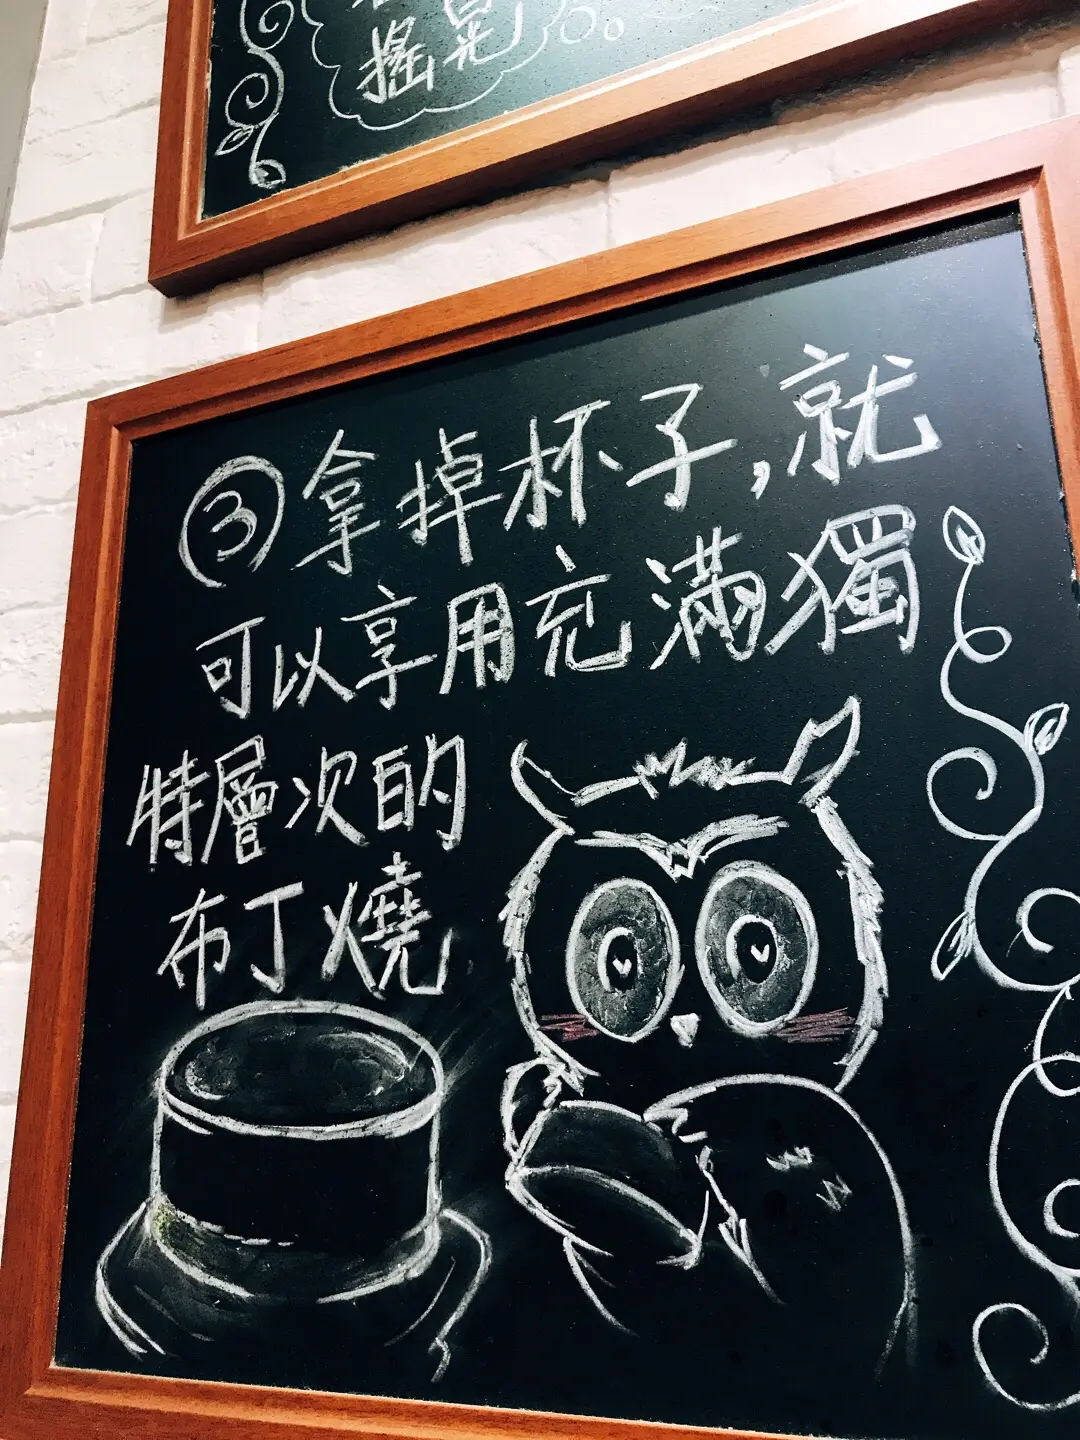 搖晃
③拿掉杯子,就
可以享用充滿獨
特層次的
布丁燒